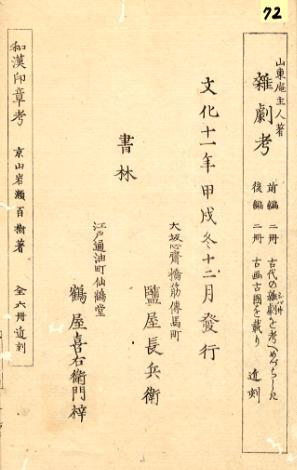 72
山東庵主人著
雑劇考
前編 二冊 古代の雑劇を考へ
後編 二冊 古画古圖を載り
近刻
文化十一年甲戌冬十二月發行
書林
大坂心齋橋筋傳馬町
鹽屋長兵衛
江戸通油町仙鶴堂
鶴屋喜右衛門梓
和漢印章考 京山岩瀬百樹著 全六冊近刻